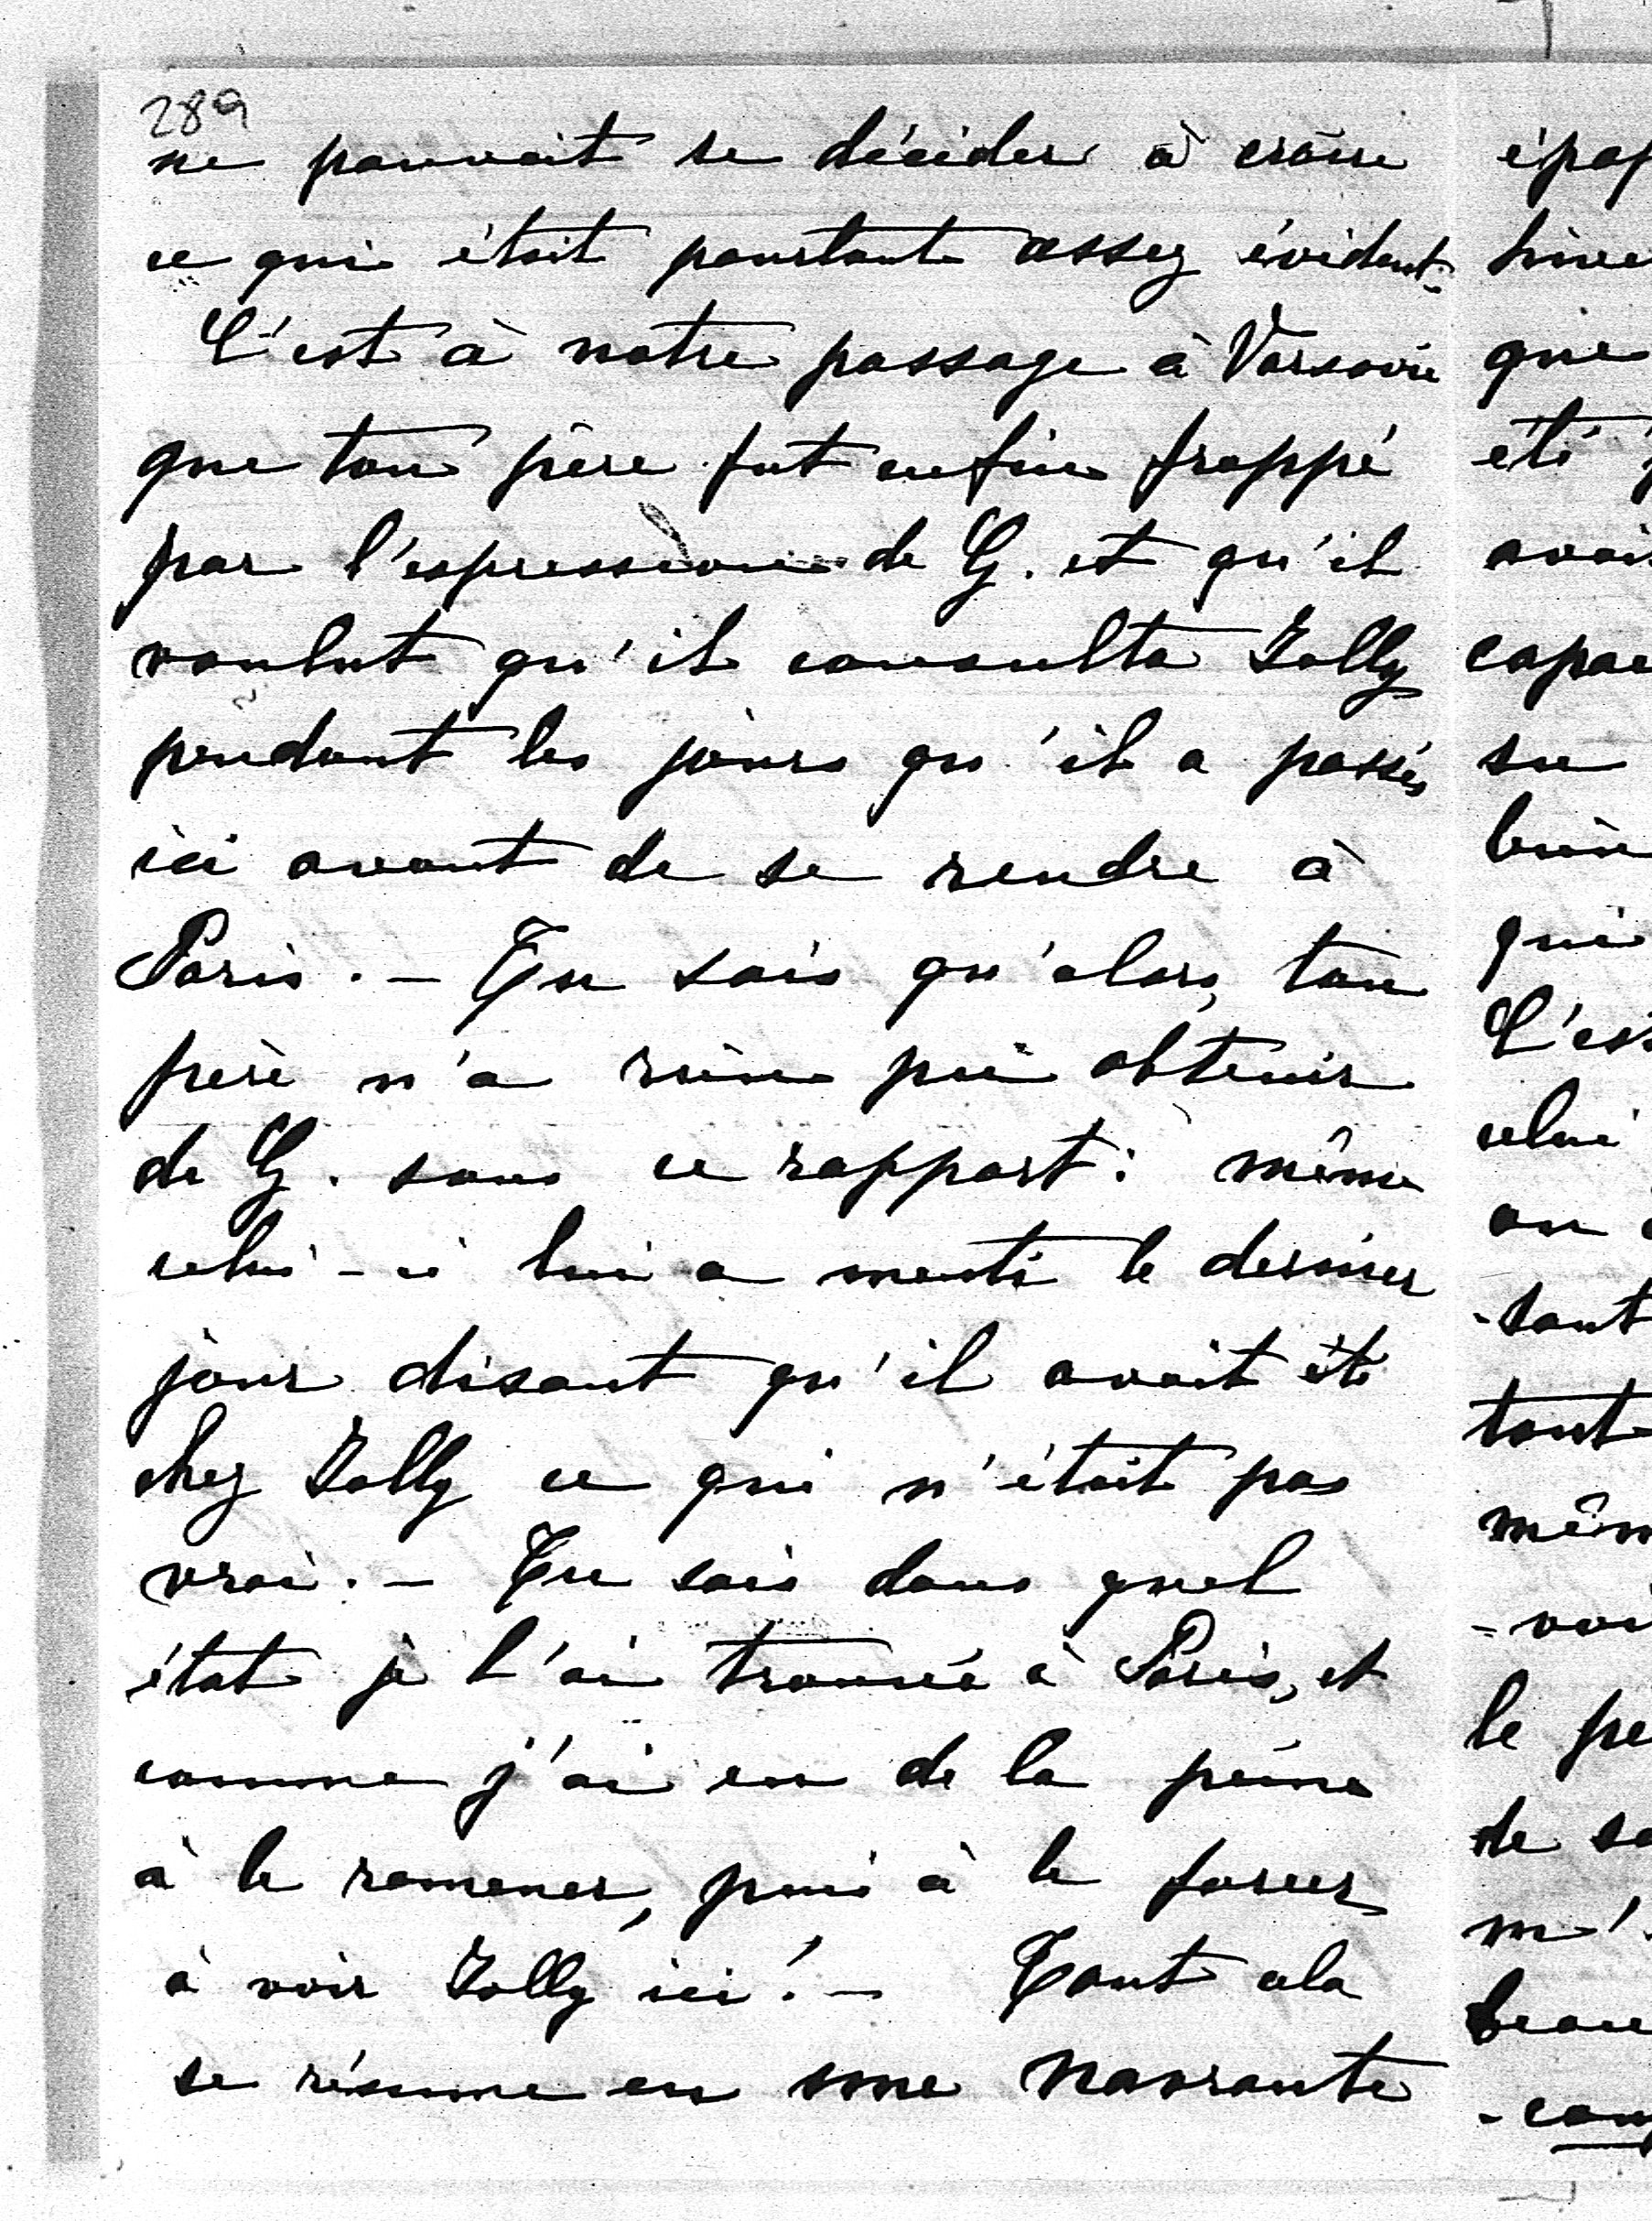 289
ne pouvait se décider à croire
ce qui était pourtant assez évident.
C'est à notre passage à Varsovie
que ton père fut enfin frappé
par l'expression de G. et qu'il
voulut qu'il consulta Jolly
pendant les jours qu'il a passés
ici avant de se rendre à
Paris. - Tu sais qu'alors, ton
frère n'a rien pu obtenir
de G. sous ce rapport : même
celui-ci lui a menti le dernier
jour disant qu'il avait été
chez Jolly ce qui n'était pas
vrai. - Tu sais dans quel
état je l'ai trouvé à Paris, et
comme j'ai eu de la peine
à le ramener, puis à le forcer
à voir Jolly ici ! - Tout cela
se résume en une navrante
que
été
su
qui
C'est
celui
on
-sant
tout
le
de
m'